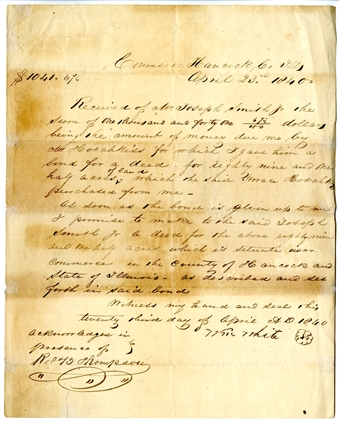 Commerce Hancock, Co Ills
April 23rd 1840
$1041.65
Received of Mr Joseph Smith Jr the
Sum of One thousand and forty One 65/100 dollars
being the amount of money due me by
Mr Hotchkiss for which I gave him a
bond for a deed - for eighty nine and one
half acres of land, which the said Horace Hotchkiss
purchased from me -
As soon as the bond is given up to me
I promise to make to the said Joseph
Smith Jr a deed for the above eighty nine
and one half acres which is situate near
Commerce in the County of Hancock and
State of Illinois - as described and set
forth in said bond
Witness my hand and Seal this
twenty third day of April A D 1840
Wm White
acknowledged in
presence of
Robt B Thompson